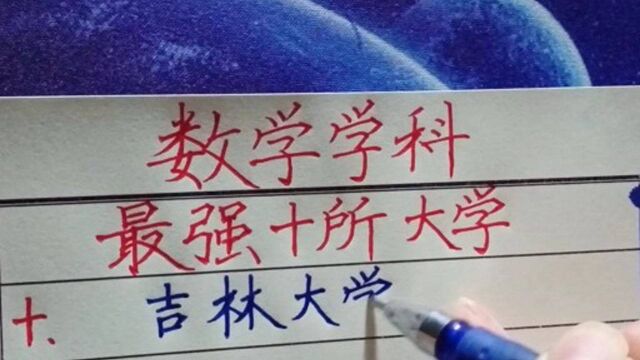 数学学科
最强十所大学
十、吉林大学